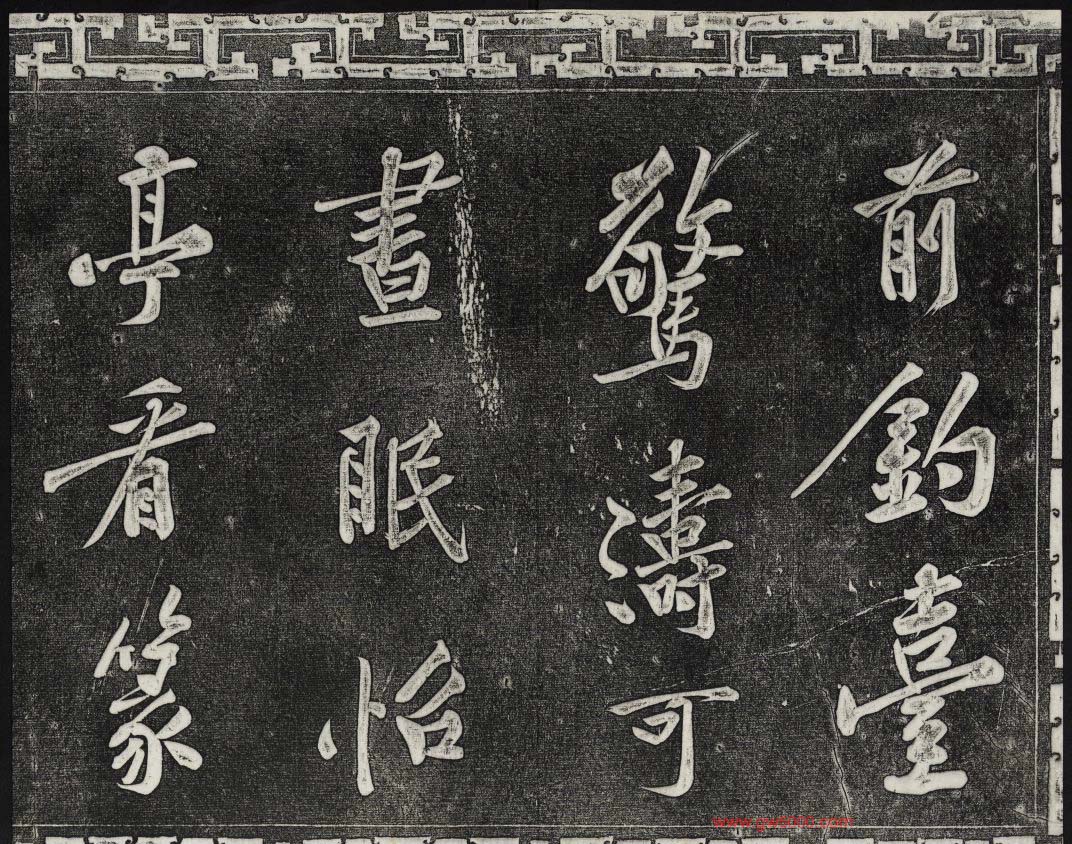 前釣臺
驚濤可
晝眠怡
亭看篆